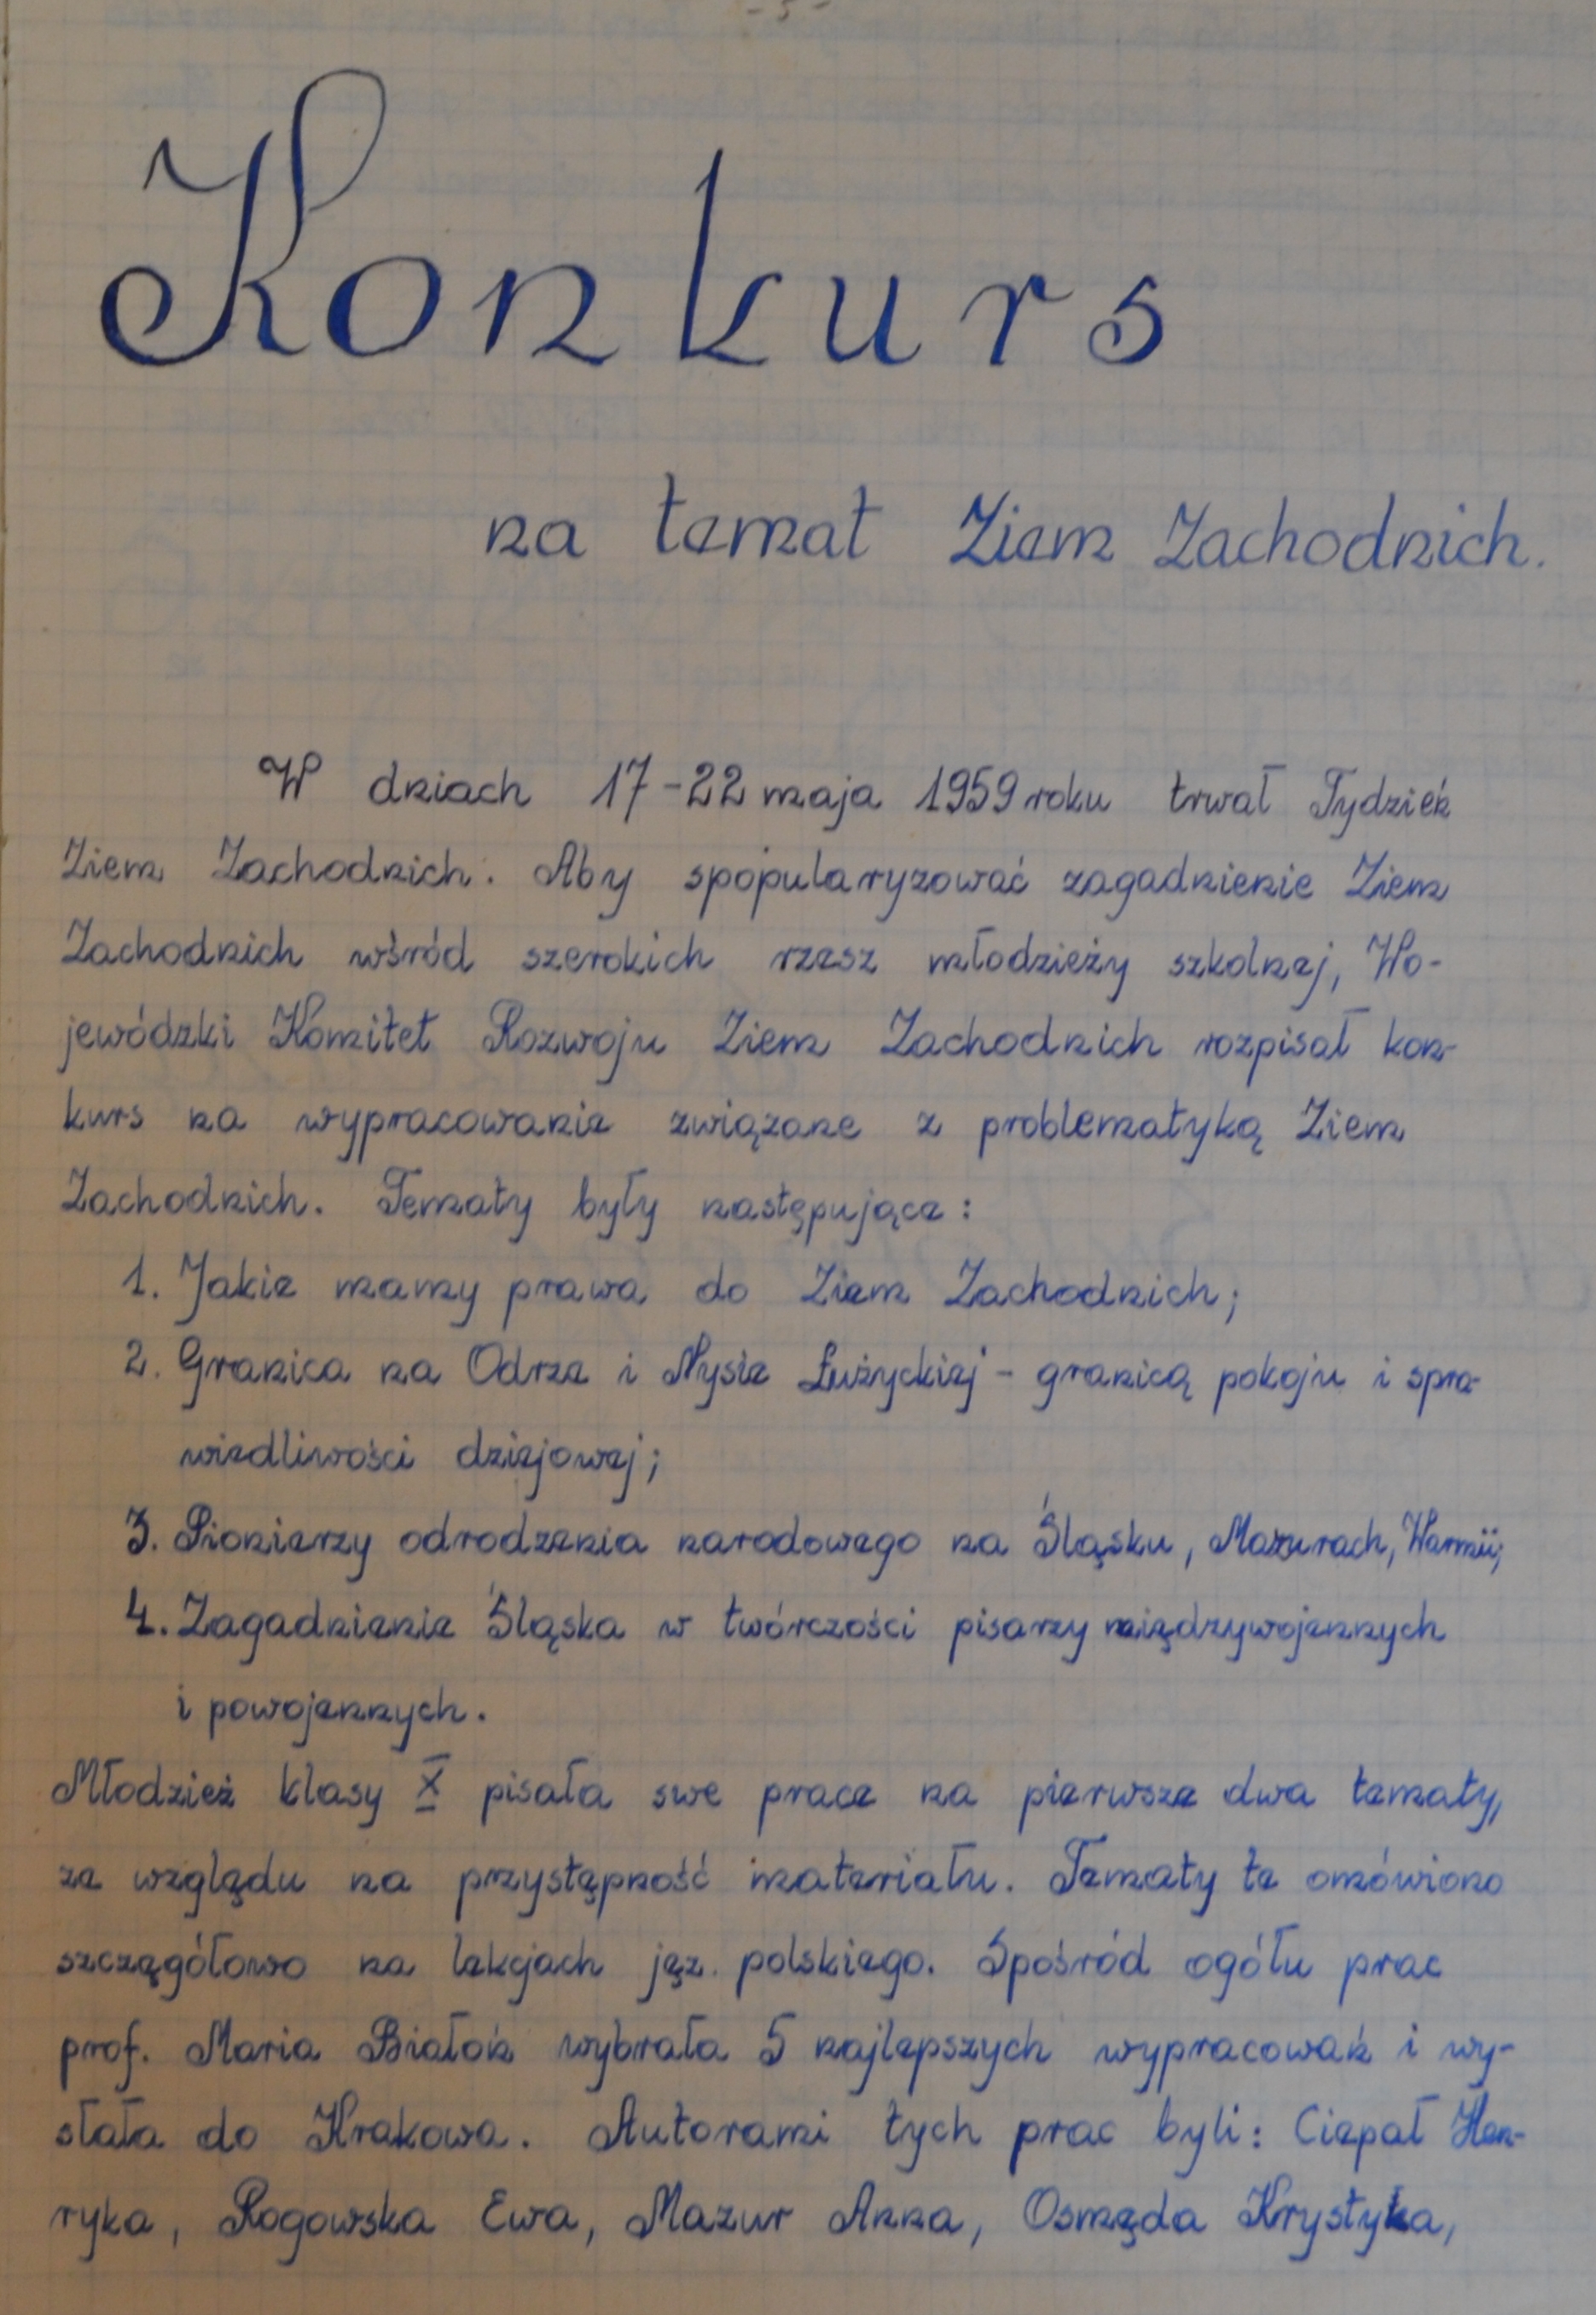 - 5 -
Konkurs
na temat Ziem Zachodnich.
W dniach 17-22 maja 1959 roku trwał Tydzień
Ziem Zachodnich. Aby spopularyzować zagadnienie Ziem
Zachodnich wśród szerokich rzesz młodzieży szkolnej, Wo-
jewódzki Komitet Rozwoju Ziem Zachodnich rozpisał kon-
kurs na wypracowanie związane z problematyką Ziem
Zachodnich. Tematy były następujące:
1. Jakie mamy prawa do Ziem Zachodnich;
2. Granica na Odrze i Nysie Łużyckiej - granicą pokoju i spra-
wiedliwości dziejowej;
3. Pionierzy odrodzenia narodowego na Śląsku, Mazurach, Warmii;
4. Zagadnienie Śląska w twórczości pisarzy międzywojennych
i powojennych.
Młodzież klasy X pisała swe prace na pierwsze dwa tematy,
ze względu na przystępność materiału. Tematy te omówiono
szczegółowo na lekcjach jęz. polskiego. Spośród ogółu prac
prof. Maria Białoń wybrała 5 najlepszych wypracowań i wy-
słała do Krakowa. Autorami tych prac byli: Ciepał Hen-
ryka, Rogowska Ewa, Mazur Anna, Osmęda Krystyna,